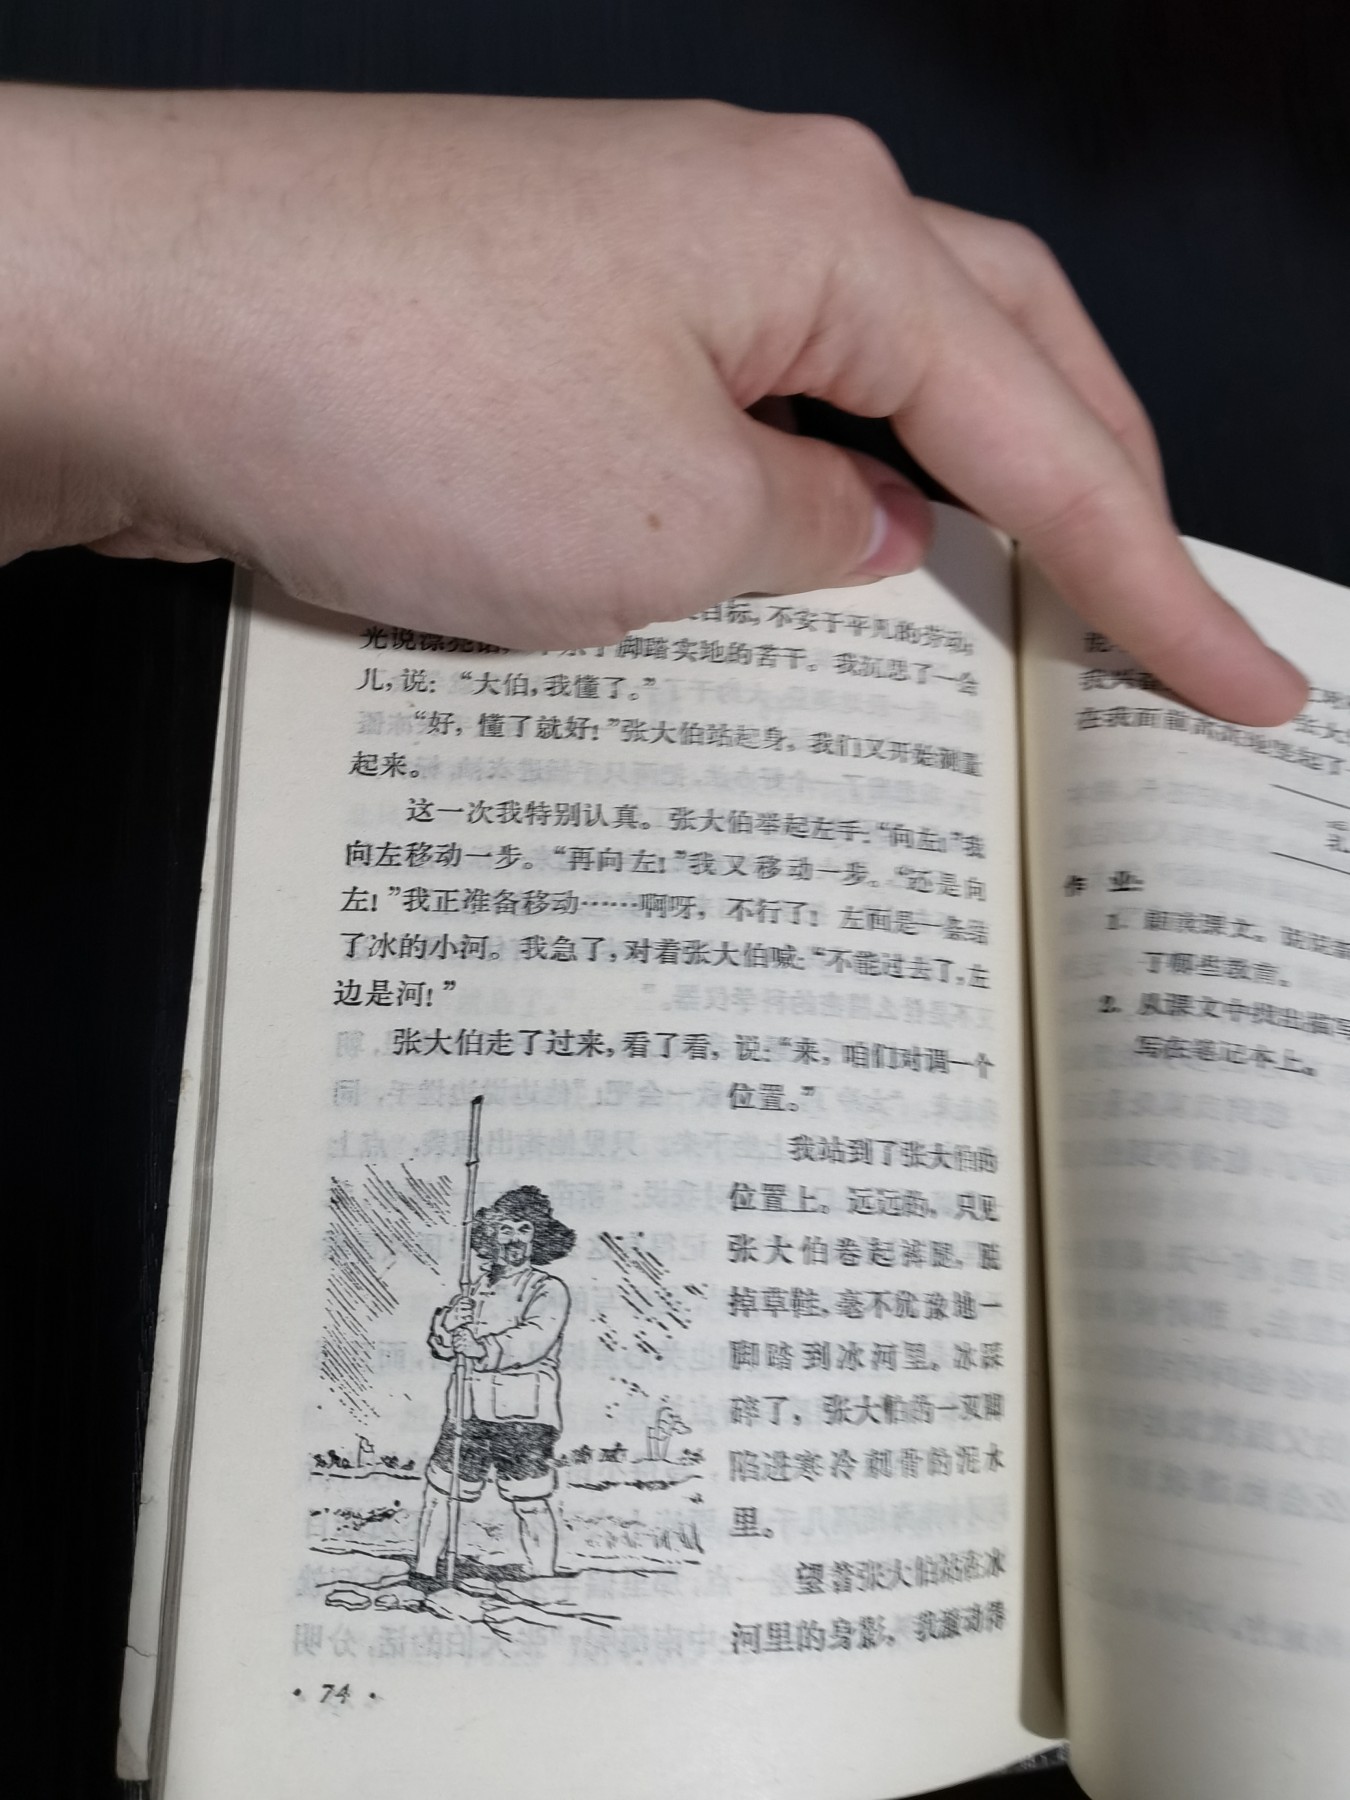 目标，不安于平凡的劳动；
脚踏实地的苦干。我沉思了一会
儿，说：“大伯，我懂了。”
“好，懂了就好！”张大伯站起身，我们又开始测量
起来。
这一次我特别认真。张大伯举起左手：“向左！”我
向左移动一步。“再向左！”我又移动一步。“还是向
左！”我正准备移动……啊呀，不行了！左面是一条结
了冰的小河。我急了，对着张大伯喊：“不能过去了，左
边是河！”
张大伯走了过来，看了看，说：“来，咱们对调一个
位置。”
我站到了张大伯的
位置上。远远的，只见
张大伯卷起裤腿，脱
掉草鞋，毫不犹豫地一
脚踏到冰河里。冰踩
碎了，张大伯的一双脚
陷进寒冷刺骨的泥水
里。
望着张大伯站在冰
河里的身影，我激动得
· 74 ·
在我面前高高地竖起了
作 业：
1. 朗读课文。
了哪些教育。
2. 从课文中找出描写
写在笔记本上。